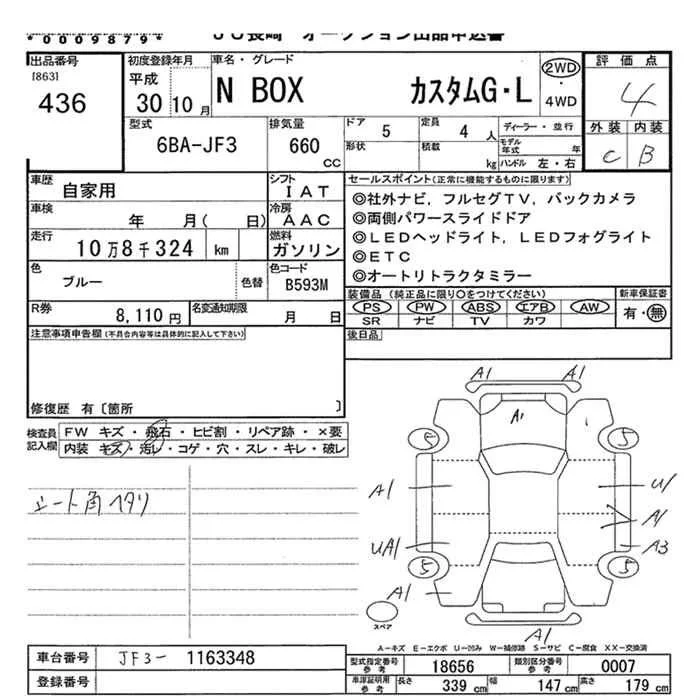 *0009879* JU長崎 オークション出品申込書
出品番号 [863] 436
初度登録年月 平成 30 10月
車名・グレード N BOX カスタムG・L
2WD・4WD
評価点 4
外装 C 内装 B
型式 6BA-JF3
排気量 660 CC
ドア 5 定員 4 人
形状 積載 kg
ディーラー・並行
モデル年式 年
ハンドル 左・右
車歴 自家用
シフト IAT
車検 年 月( 日)
冷房 AAC
走行 10万8千324 km
燃料 ガソリン
色 ブルー 色替
色コード B593M
R券 8,110円
名変通知期限 月 日
セールスポイント(正常に機能するものに限ります)
◎社外ナビ, フルセグTV, バックカメラ
◎両側パワースライドドア
◎LEDヘッドライト, LEDフォグライト
◎ETC
◎オートリトラクタミラー
装備品 (純正品に限り○をつけてください)
PS PW ABS エアB AW
SR ナビ TV カワ
新車保証書 有・無
後日品
注意事項申告欄(不具合内容等は具体的に記入して下さい)
修復歴 有〔箇所 〕
検査員記入欄
FW キズ・飛石・ヒビ割・リペア跡・×要
内装 キズ・汚レ・コゲ・穴・スレ・キレ・破レ
シート角ヘタリ
A1 A1
A1
5 5
A1 U1
A1
UA1 A3
5 5
A1
スペア
A1
A-キズ E-エクボ U-凹み W-補修跡 S-サビ C-腐食 XX-交換済
車台番号 JF3- 1163348
登録番号
型式指定番号 参考 18656
類別区分番号 参考 0007
車庫証明用 参考 長さ 339 cm 幅 147 cm 高さ 179 cm